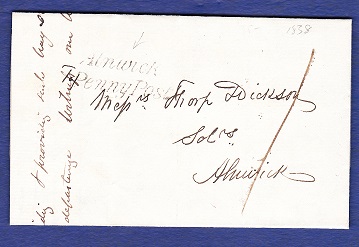 1838
Alnwick
Penny Post
Messrs Thorp Dickson
Solrs
Alnwick
& providing such